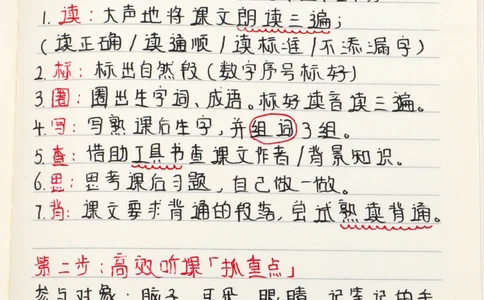 1. 读:大声地将课文朗读三遍;
(读正确/读通顺/读标准/不添漏字)
2. 标:标出自然段(数字序号标好)
3. 圈:圈出生字词、成语。标好读音读三遍。
4. 写:写熟课后生字,并组词3组。
5. 查:借助工具书查课文作者/背景知识。
6. 思:思考课后习题,自己做一做。
7. 背:课文要求背诵的段落,尝试熟读背诵。
第二步:高效听课「抓重点」
参与对象:脑子、耳朵、眼睛、记笔记的手